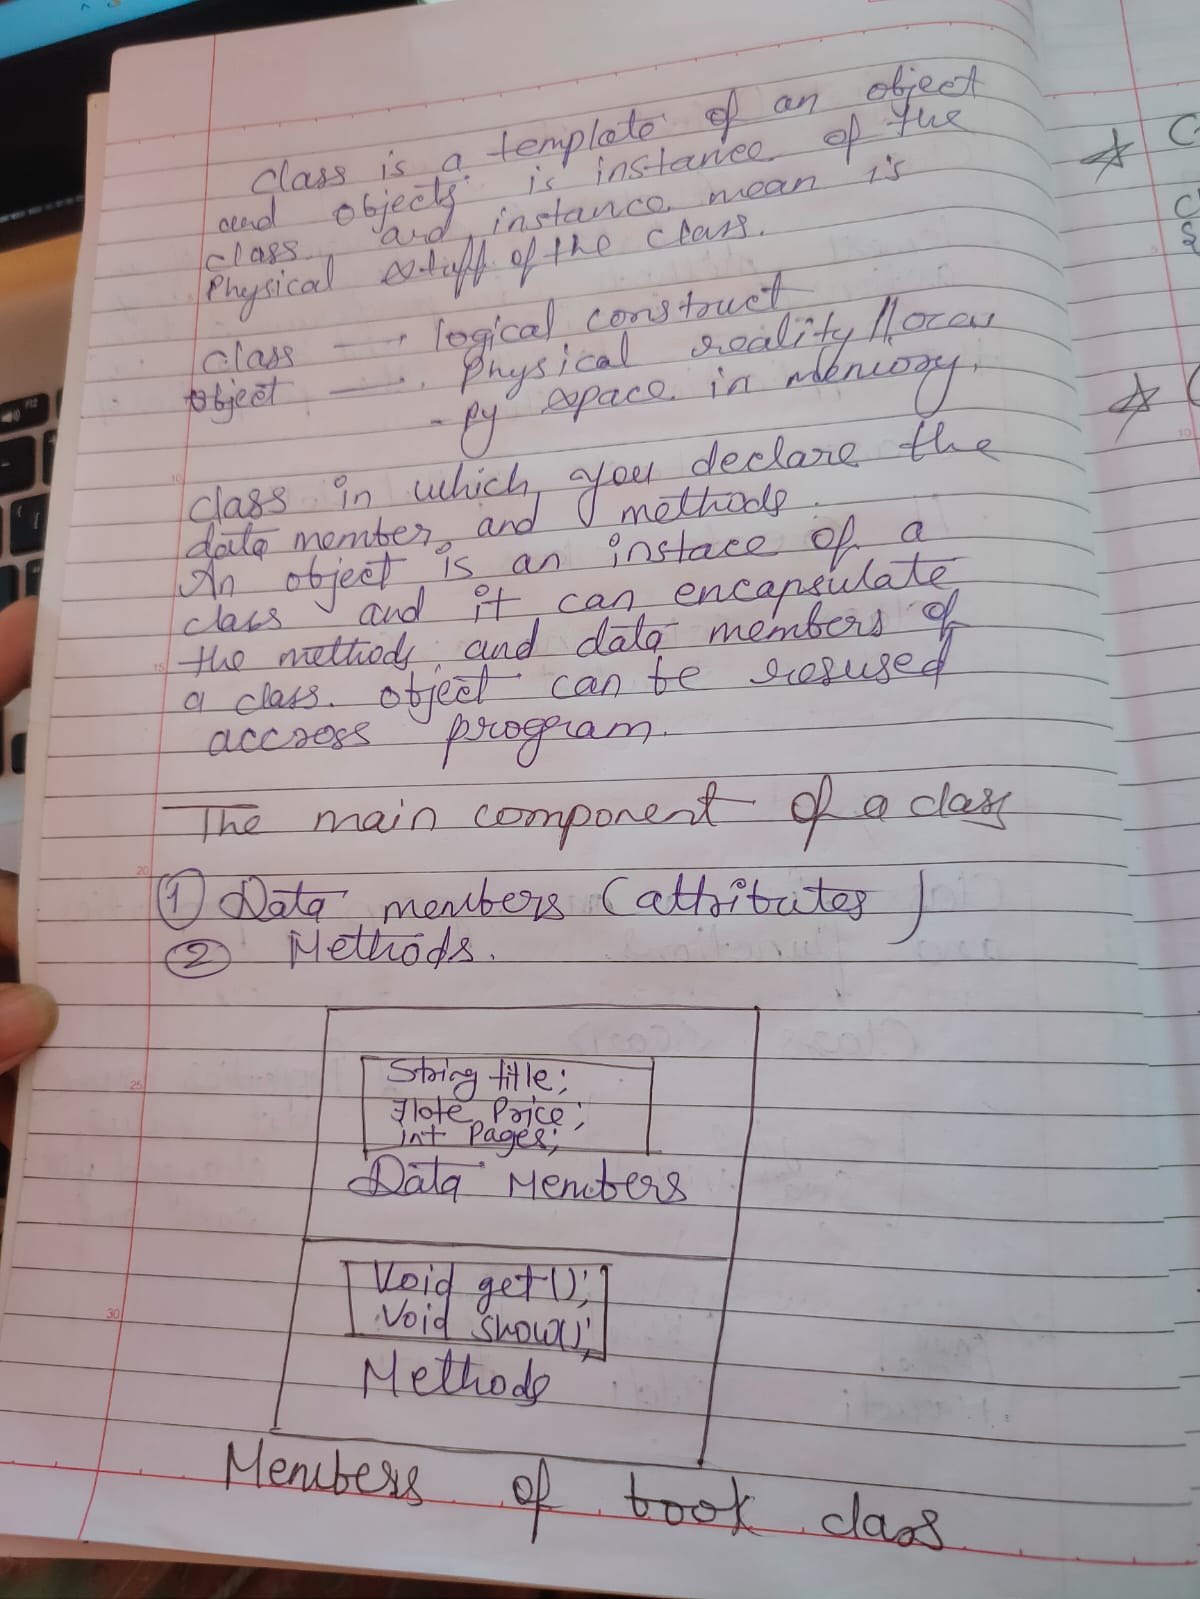 class is a template of an object
and objects is instance of the
class, and instance mean is
Physical stuff of the class.
class → logical construct
object → Physical reality // occu
- py space in memory.
class in which you declare the
data member and methods.
An object is an instace of a
class and it can encapsulate
the methods and data members of
a class. object can be resused
accross program.
The main component of a class
① Data members (attributes)
② Methods.
String title;
Flote Price;
int Pages;
Data Members
Void get();
Void show();
Methods
Members of book class